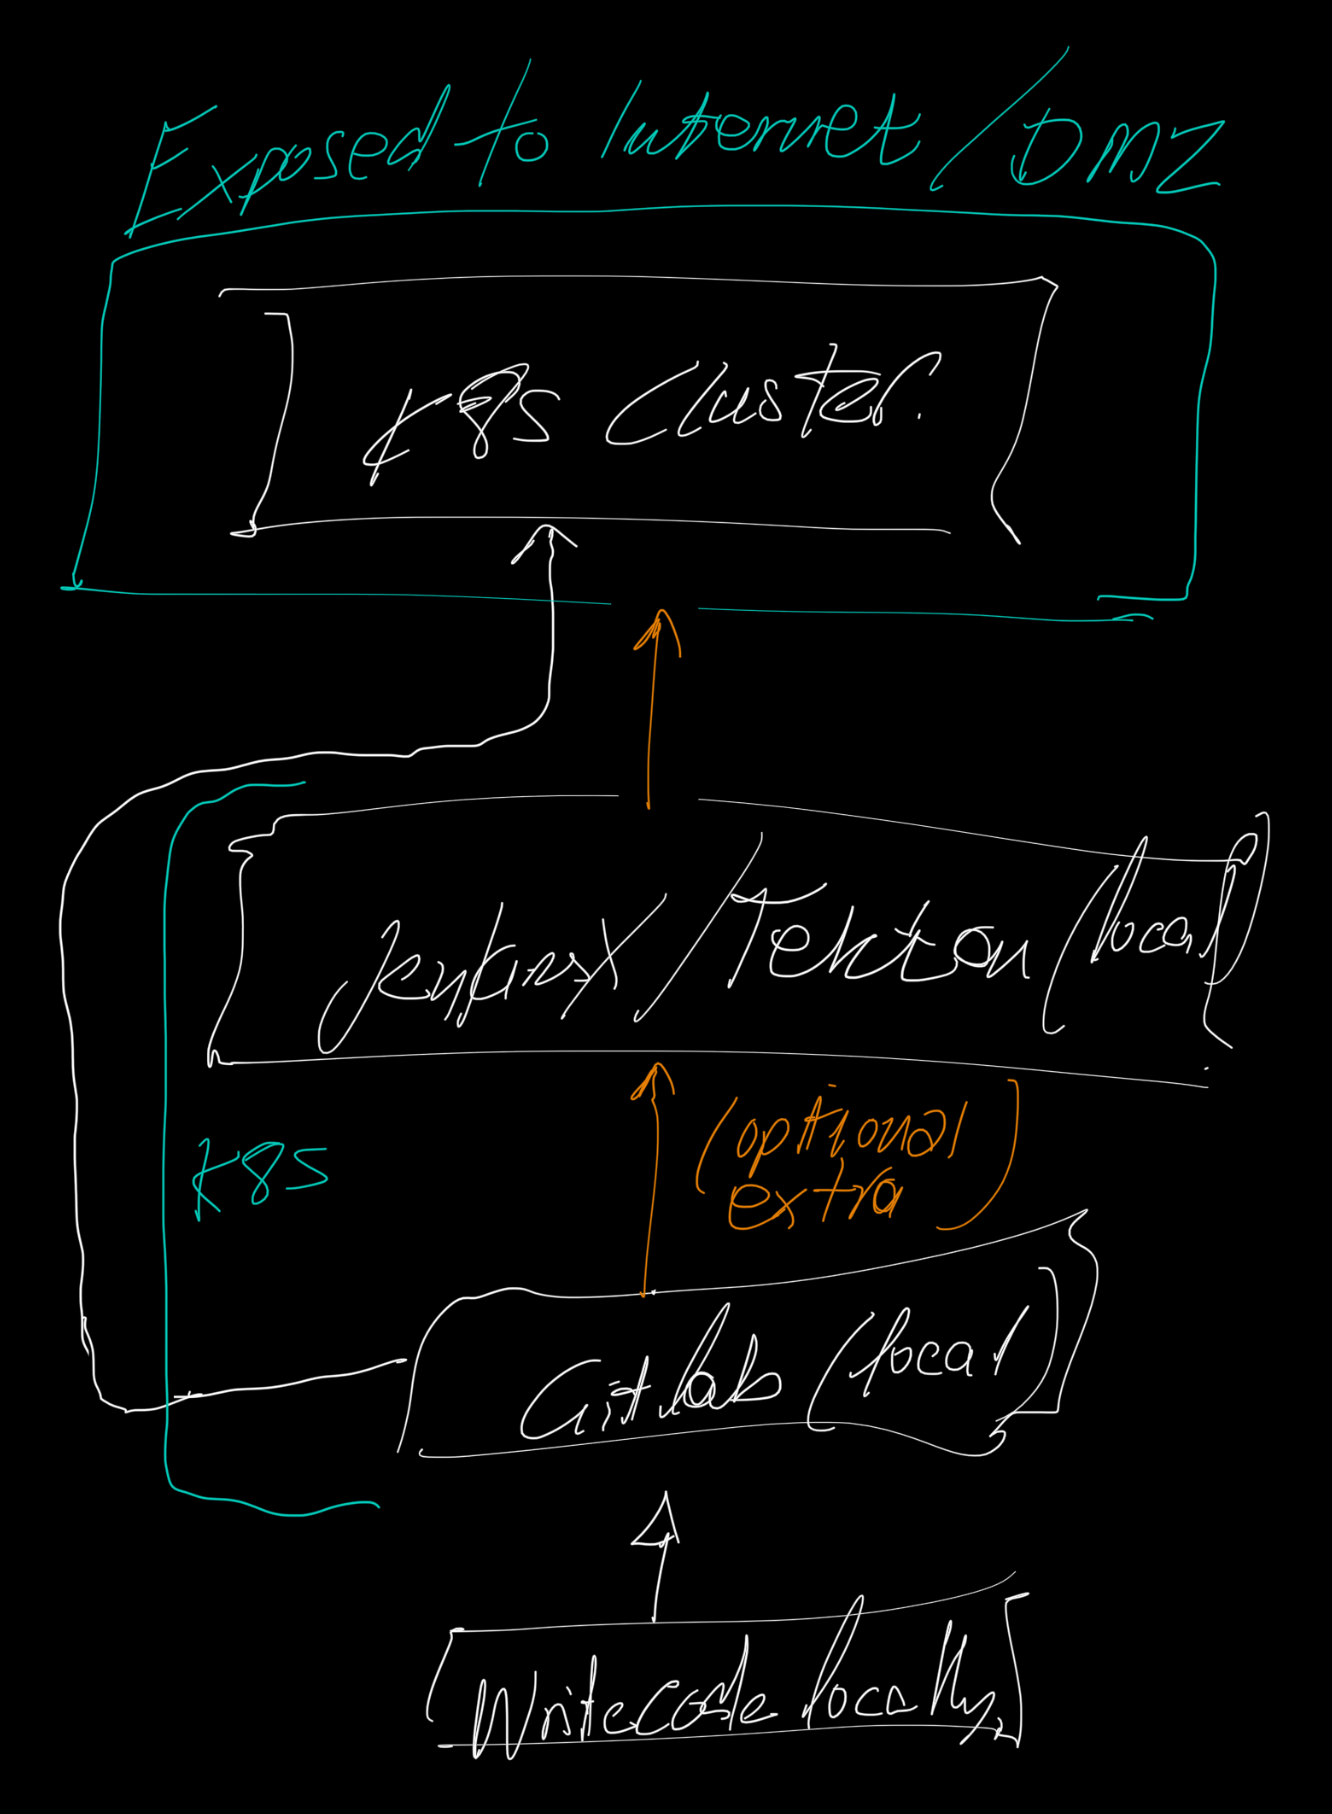 Exposed to Internet / DMZ
K8s Cluster.
JenkinsX / Tekton (local)
(optional
extra)
K8S
Gitlab (local)
Write code locally